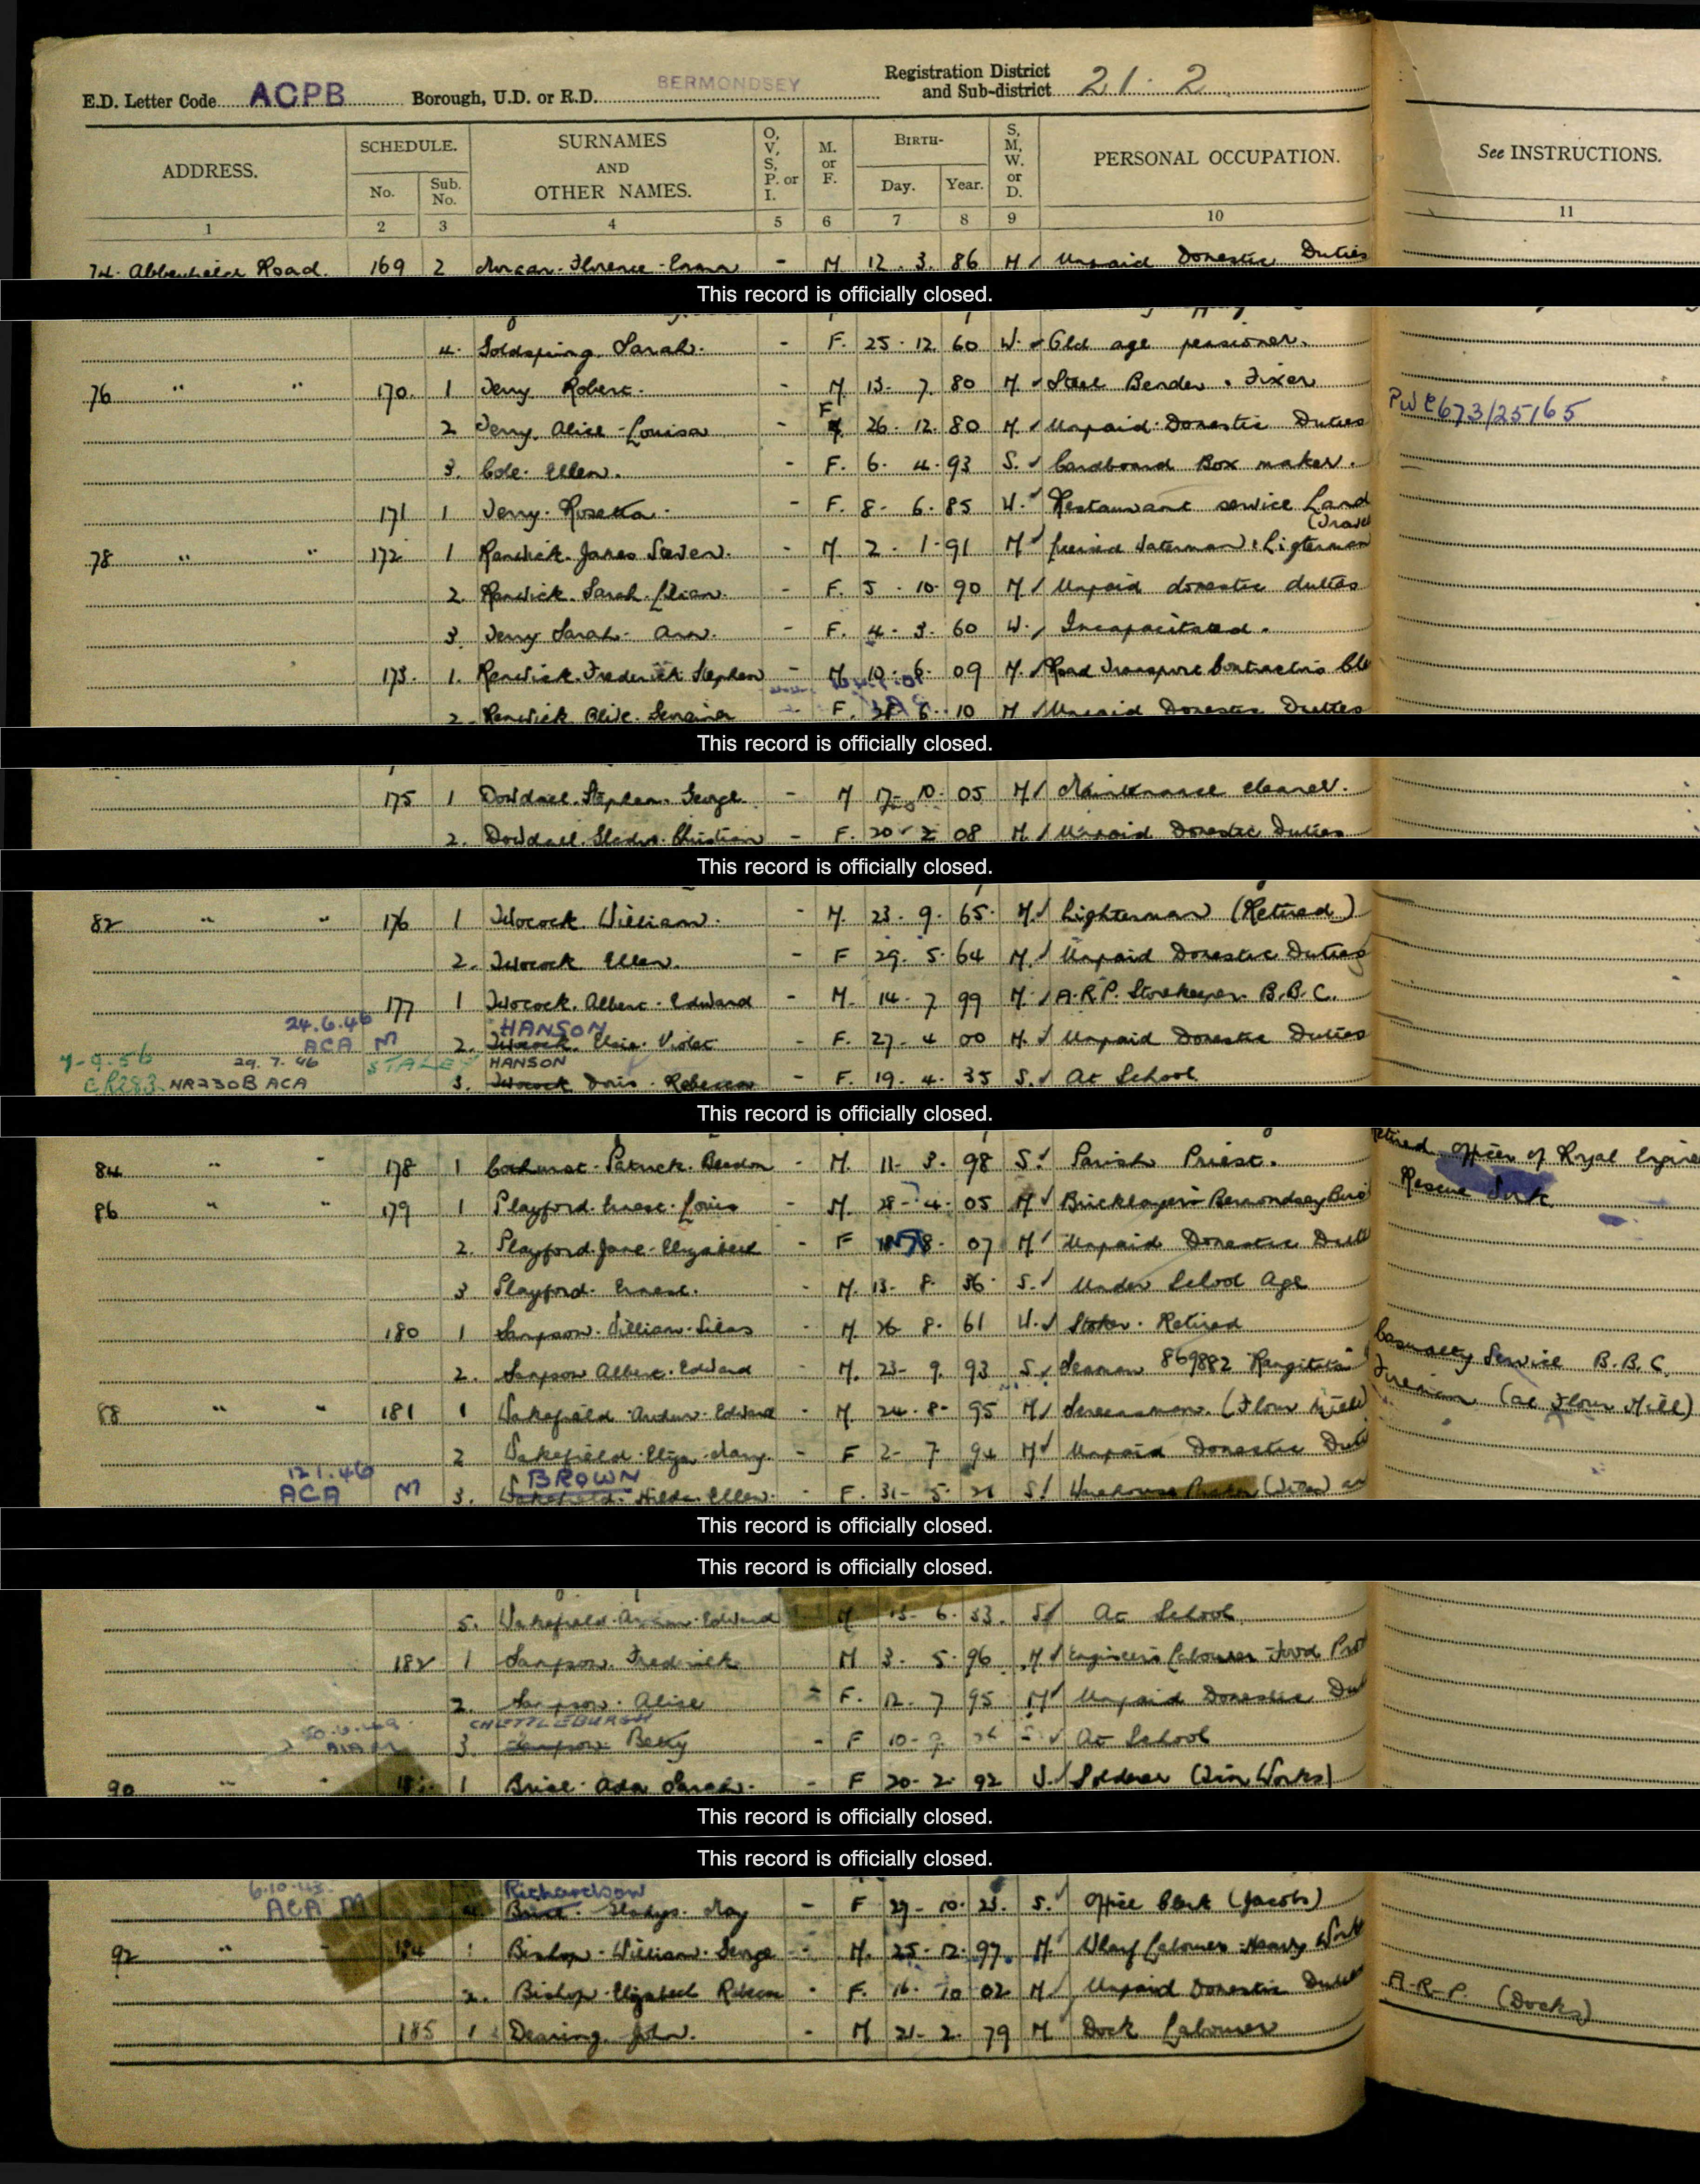 E.D. Letter Code ACPB Borough, U.D. or R.D. BERMONDSEY Registration District and Sub-district 21 . 2
ADDRESS. SCHEDULE. No. Sub. No. SURNAMES AND OTHER NAMES. O, V, S, P. or I. M. or F. BIRTH- Day. Year. S, M, W. or D. PERSONAL OCCUPATION. See INSTRUCTIONS.
1 2 3 4 5 6 7 8 9 10 11
74 Abbeyfield Road. 169 2 Florence - M 12 . 3. 86 M Unpaid Domestic Duties
This record is officially closed.
4. Goldspring Sarah. - F. 25 . 12 60 W. Old age pensioner.
76 " " 170. 1 Terry Robert. - M 13- 7. 80 M. Steel Bender . Fixer
2 Terry. Alice Louisa - F 26. 12. 80 M. Unpaid Domestic Duties PWE673/25/65
3. Cole. Ellen. - F. 6. 4. 93 S. Cardboard Box maker.
171 1 Terry. Rosetta. - F. 8- 6. 85 W. Restaurant service Land
78 " " 172 1 Renwick. James Steven. - M 2 . 1. 91 M Waterman & Ligterman
2. Renwick. Sarah. Lilian. - F. 5 . 10. 90 M Unpaid domestic duties
3. Terry Sarah. Ann. - F. 4. 3. 60 W. Incapacitated.
173. 1. Renwick. Frederick Stephen - M 10. 6. 09 M. Road Transport Contractors Cle
2. Renwick Olive. - F. 6. 10 M Unpaid Domestic Duties
This record is officially closed.
175 1 Dowdall. Stephen. George - M 17- 10. 05 M Maintenance cleaner.
2. Dowdall. Gladys. Christian - F. 20 2 08 M. Unpaid Domestic Duties
This record is officially closed.
82 " " 176 1 Twocock. William. - M. 23 . 9. 65. M. Lighterman (Retired)
2. Twocock Ellen. - F 29. 5. 64 M. Unpaid Domestic Duties
177 1 Twocock. Albert. Edward - M. 14. 7 99 M. A.R.P. Storekeeper. B.B.C.
24.6.46 ACA M HANSON
2. Twocock. Elsie. Violet - F. 27. 4 00 M. Unpaid Domestic Duties
7-9-56 CR283 29. 7. 46 NR230B ACA STALEY HANSON
3. Twocock Doris. Rebecca - F. 19. 4. 35 S. At School
This record is officially closed.
84 " " 178 1 Patrick. - M. 11- 3. 98 S. Parish Priest. Retired Officer of Royal Engine
86 " " 179 1 Playford. Ernest. Louis - M. 28- 4. 05 M Bricklayer Bermondsey Rescue Work
2. Playford. Jane. Elizabeth - F 8. 07 M Unpaid Domestic Duti
3 Playford. Ernest. - M. 13. 8. 36. S. Under School Age
180 1 Sampson. William. Silas - M. 26 8. 61 W. Stoker. Retired
2. Sampson Albert. Edward - M. 23- 9. 93 S. Seaman 869882 Rangitata Casualty Service B.B.C.
88 " " 181 1 Wakefield. Arthur. Edward - M. 24. 8- 95 M Screensman. (Flour Mill) Fireman (at Flour Mill)
2 Wakefield. Eliza. Mary. - F 2- 7 94 M Unpaid Domestic Duti
12 1.46 ACA M BROWN
3. Wakefield. Hilda. Ellen. - F. 31- 5. 21 S. Warehouse
This record is officially closed.
This record is officially closed.
5. Wakefield. Arthur. Edward M 15- 6. 33. S At School
182 1 Sampson. Fredrick. M 3. 5. 96 M Engineers Labourer Food Pro
2. Sampson. Alice F. 12. 7 95 M Unpaid Domestic Du
CHETTLEBURGH
3. Sampson Betty - F 10- 9. 26 At School
90 " " 1 Brise. Ada Sarah. - F 20- 2. 92 W. Solderer (Tin Works)
This record is officially closed.
This record is officially closed.
6.10.45 ACA M Richardson
4. Gladys. May - F 29- 10. 23. S. Office Clerk (Jacobs)
92 " 184 1 Bishop. William. George - M. 25- 12. 97 M. Wharf Labourer Heavy Work
2. Bishop. Elizabeth - F. 16. 10 02 M Unpaid Domestic Duties
185 1 Dearing. John. - M 21- 2. 79 M Dock Labourer A.R.P. (Docks)